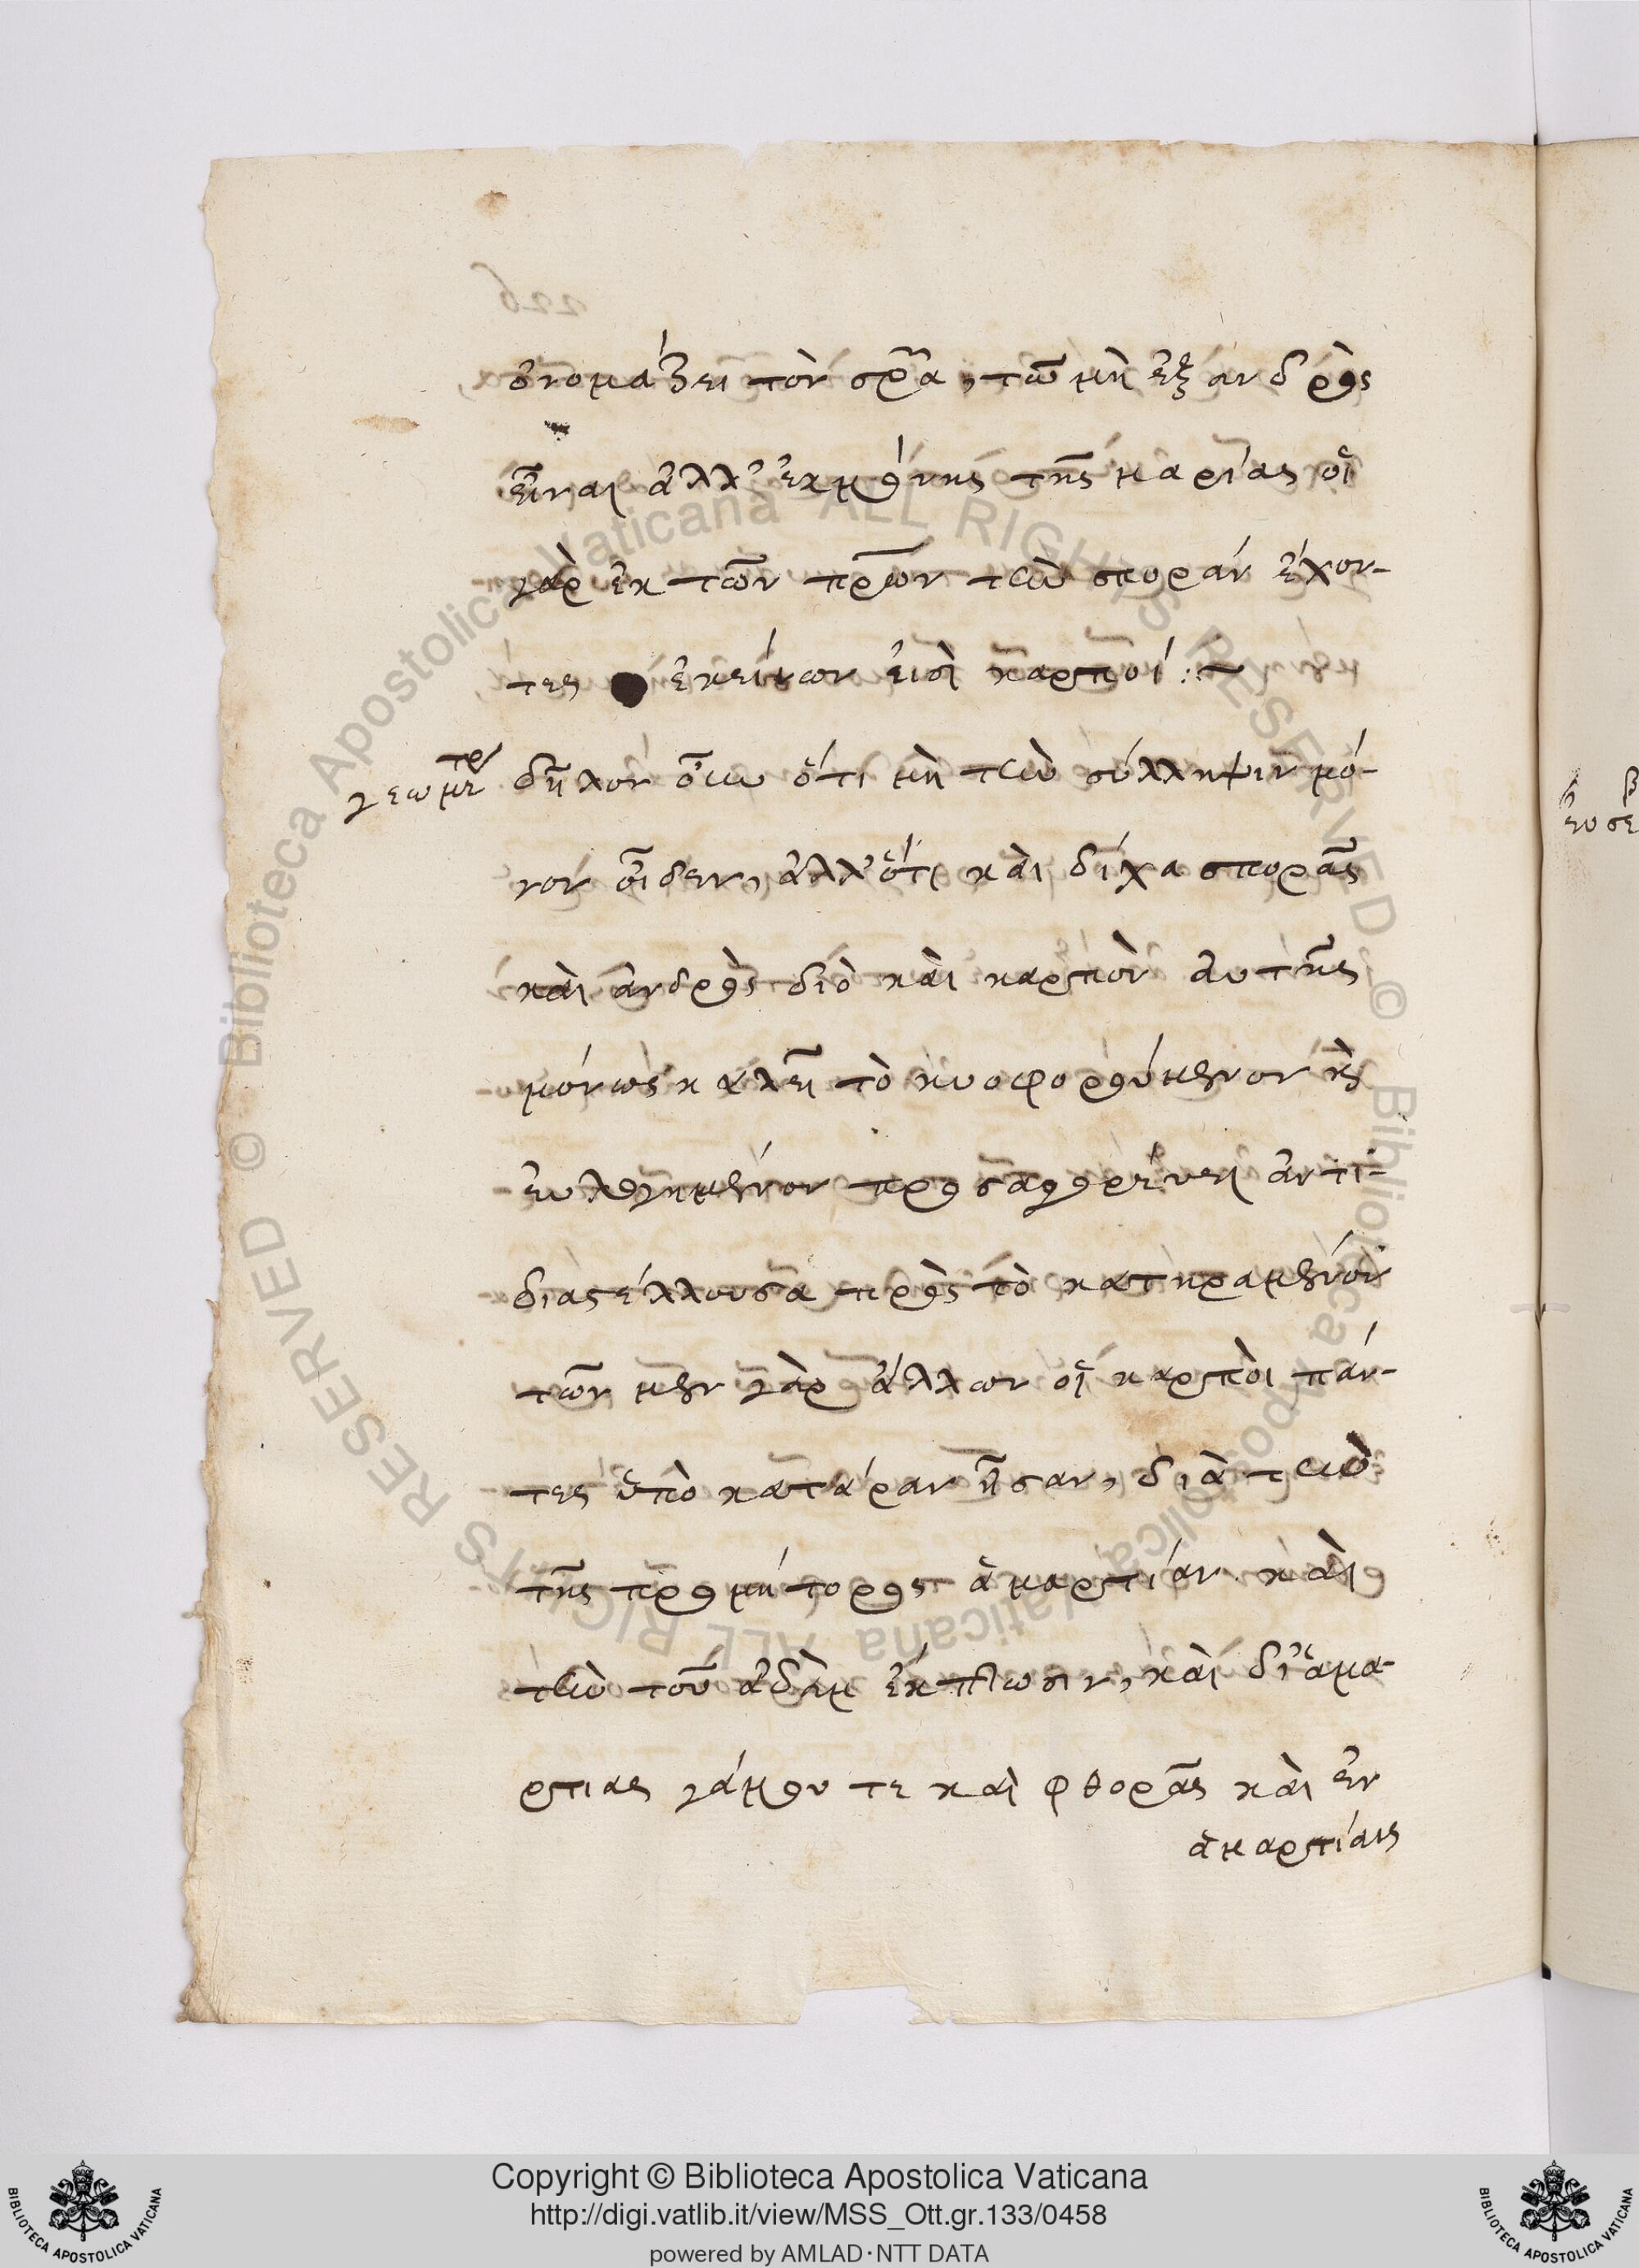 ὀνομάζει τὸν σρ̅α, τῶ μὴ ἐξ ἀνδρὸς
εἶναι ἀλλ' ἐκ μόνης τῆς μαρίας οἱ
γὰρ ἐκ τῶν πρ̅ων τὴν σποράν ἔχον-
τες ἐκείνων εἰσὶ καρποί :~
γεωμετρ δῆλον οὖν ὅτι μὴ τὴν σύλληψιν μό-
νον οἶδεν, ἀλλ' ὅτι καὶ δίχα σπορᾶς
καὶ ἀνδρὸς διὸ καὶ καρπὸν αὐτῆς
μόνως καλεῖ τὸ κυοφορούμενον κ̀
ευλογημένον προσαγορεύει ἀντι-
διαστέλλουσα πρὸς τὸ κατηραμένον
τῶν μεν γὰρ ἄλλων οἱ καρποὶ πάν-
τες ὑπὸ κατάραν ἦσαν, διὰ τὴν
τῆς προμήτορος ἁμαρτίαν. καὶ
τὴν τοῦ ἀδὰμ ἔκπτωσιν, καὶ δι' ἁμα-
ρτιας γάμου τε καὶ φθορᾶς καὶ ἐν
ἁμαρτίαις
226
Copyright © Biblioteca Apostolica Vaticana
http://digi.vatlib.it/view/MSS_Ott.gr.133/0458
powered by AMLAD·NTT DATA
BIBLIOTECA APOSTOLICA VATICANA
BIBLIOTECA APOSTOLICA VATICANA
Biblioteca Apostolica Vaticana ALL RIGHTS RESERVED ©
Biblioteca Apostolica Vaticana ALL RIGHTS RESERVED ©